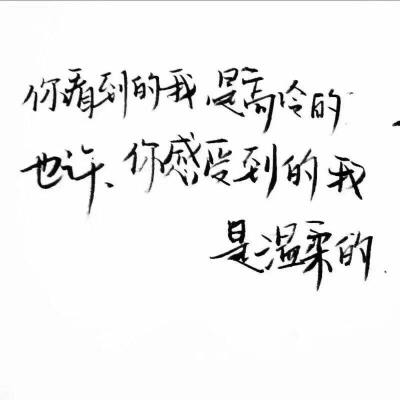 你看到的我是高冷的
也许、你感受到的我
是温柔的.